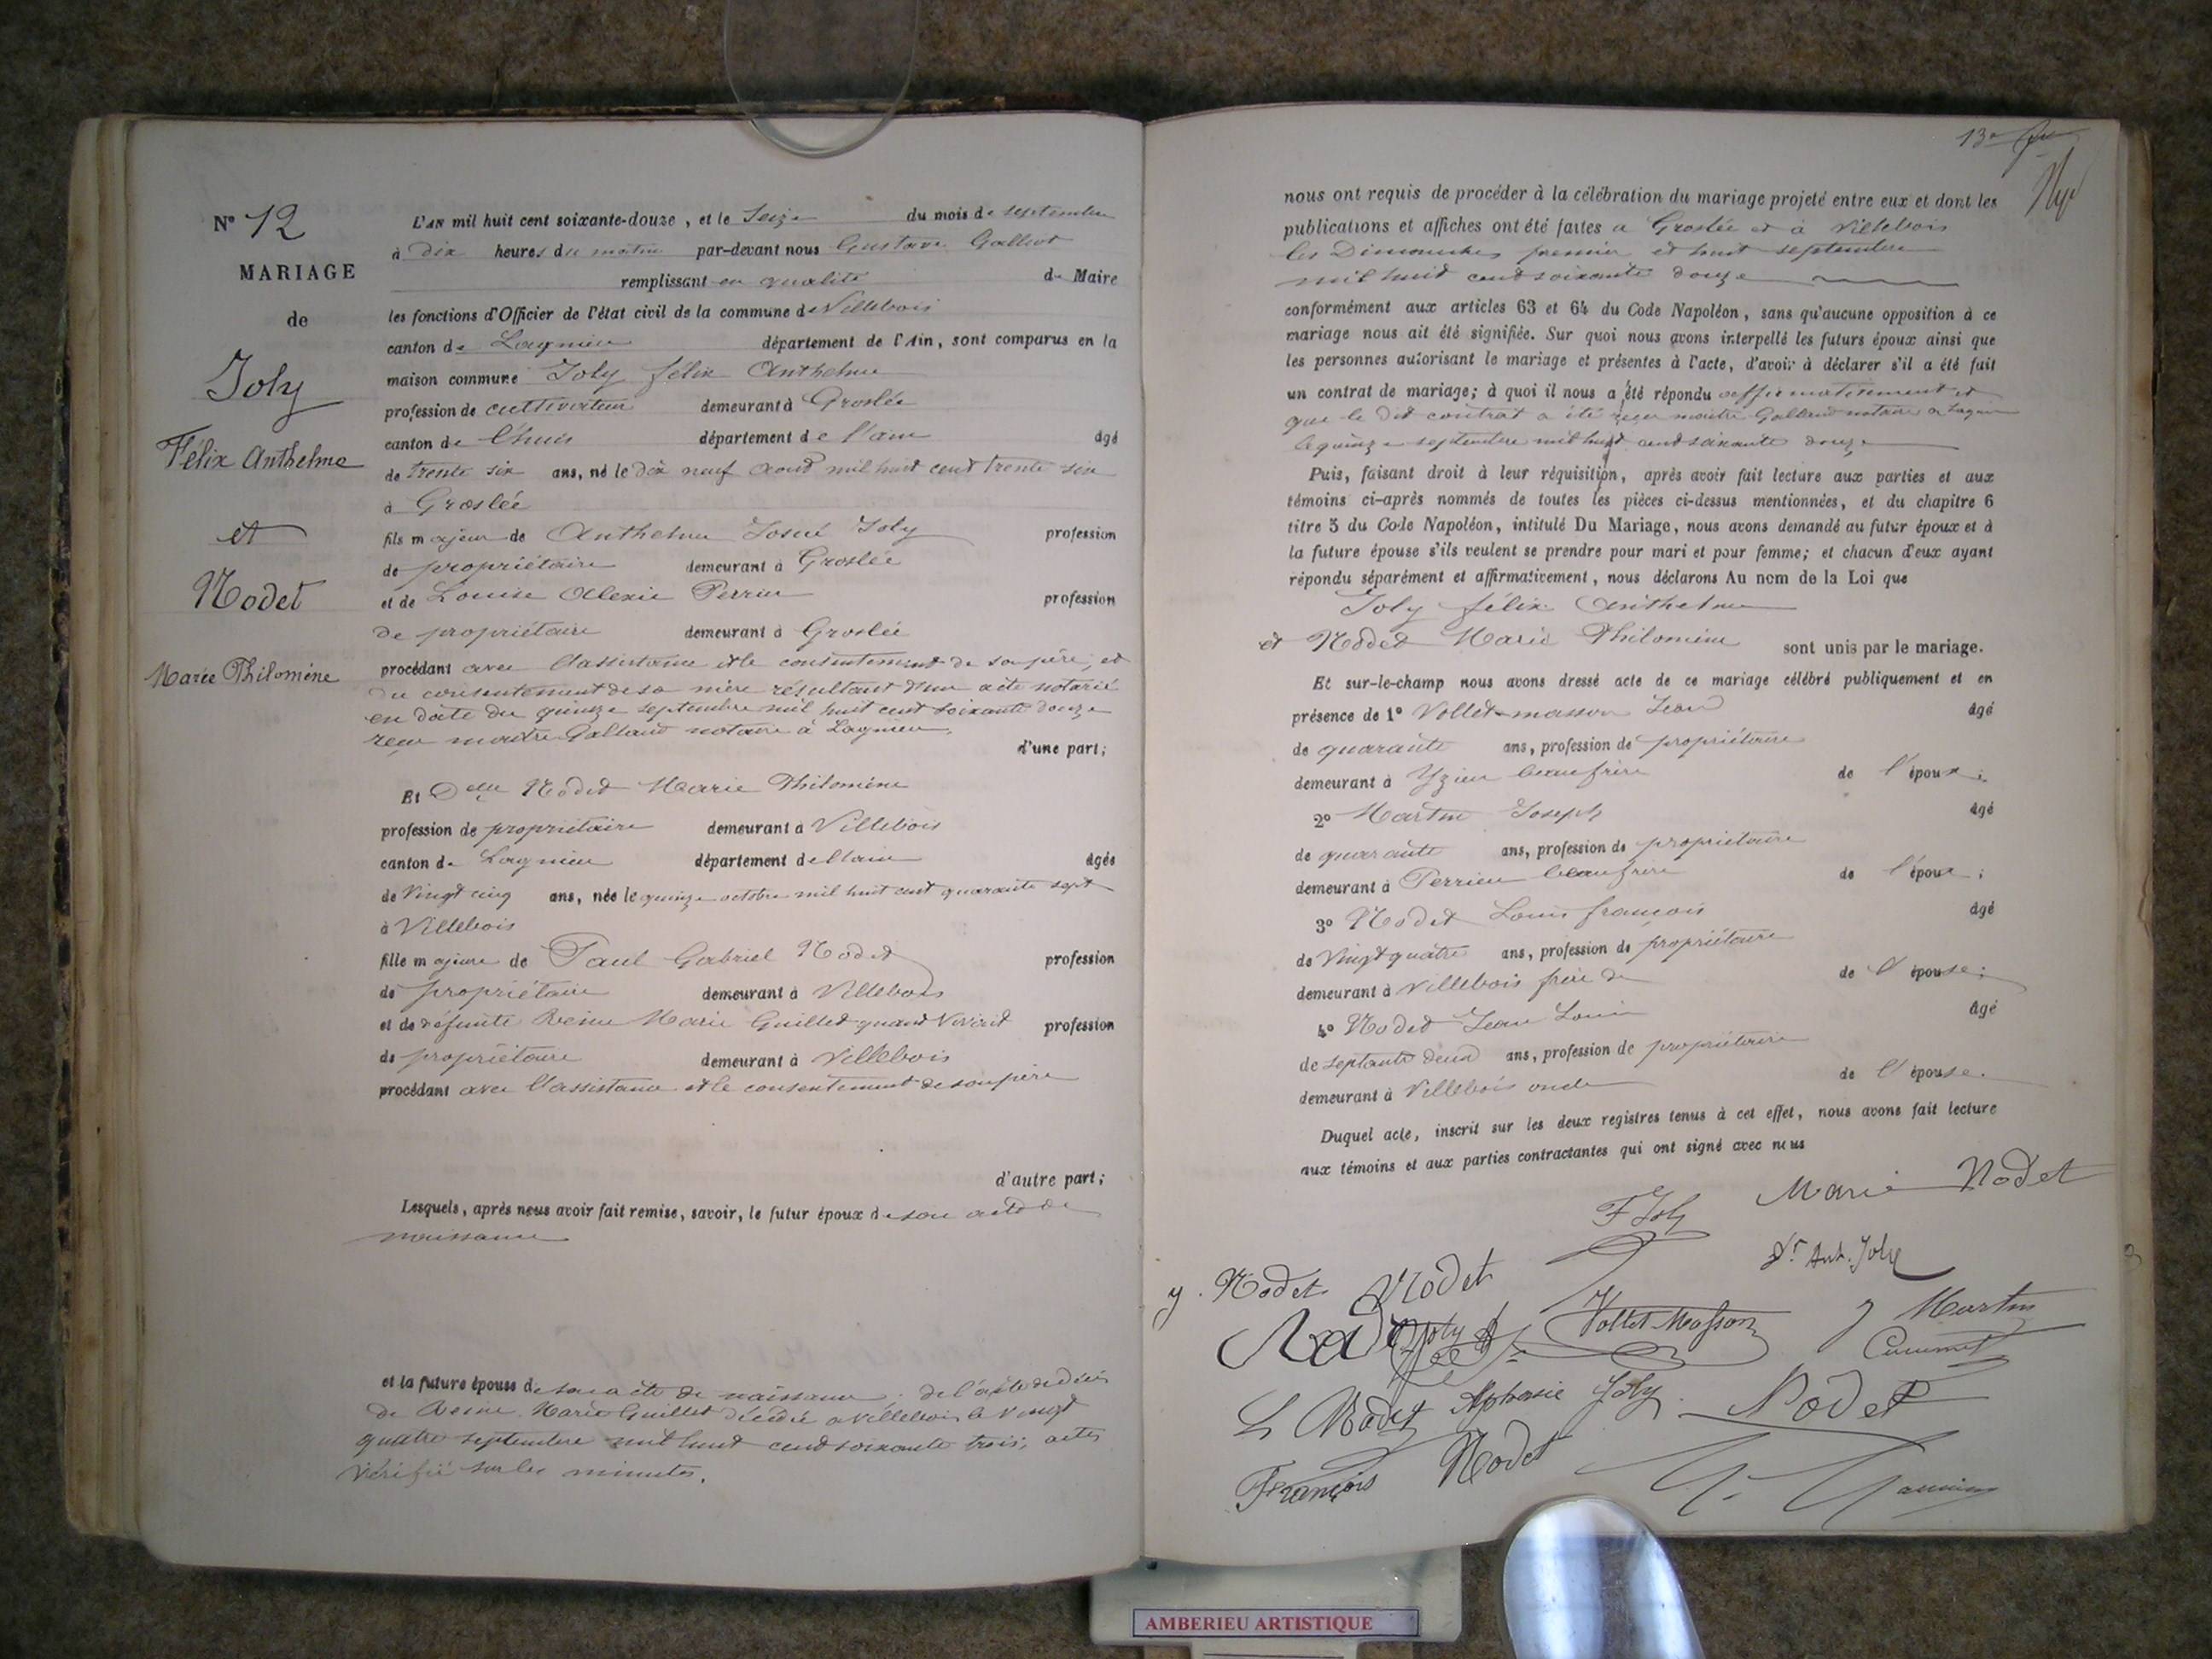 N° 12
MARIAGE
de
Joly
Félix Anthelme
et
Nodet
Marie Philomène
L'AN mil huit cent soixante-douze, et le Seize du mois de septembre
à dix heures du matin par-devant nous Gustave Galliot
remplissant en qualité de Maire
les fonctions d'Officier de l'état civil de la commune de Villebois
canton de Lagnieu département de l'Ain, sont comparus en la
maison commune Joly félix Anthelme
profession de cultivateur demeurant à Groslée
canton de Lhuis département de l'ain âgé
de trente six ans, né le dix neuf aout mil huit cent trente six
à Groslée
fils majeur de Anthelme Josué Joly profession
de propriétaire demeurant à Groslée
et de Louise Alexie Perrin profession
de propriétaire demeurant à Groslée
procédant avec l'assistance et le consentement de son père, et
du consentement de sa mère résultant d'un acte notarié
en date du quinze septembre mil huit cent soixante douze
reçu maitre Galland notaire à Lagnieu.
d'une part;
Et Delle Nodet Marie Philomène
profession de propriétaire demeurant à Villebois
canton de Lagnieu département de l'ain âgée
de Vingt cinq ans, née le quinze octobre mil huit cent quarante sept
à Villebois
fille majeure de Paul Gabriel Nodet profession
de propriétaire demeurant à Villebois
et de défunte Reine Marie Guillet quand vivait profession
de propriétaire demeurant à Villebois
procédant avec l'assistance et le consentement de son père
d'autre part;
Lesquels, après nous avoir fait remise, savoir, le futur époux de son acte de
naissance
et la future épouse de son acte de naissance, de l'acte de décès
de Reine Marie Guillet décédée à Villebois le vingt
quatre septembre mil huit cent soixante trois, actes
vérifié sur les minutes.
13e
nous ont requis de procéder à la célébration du mariage projeté entre eux et dont les
publications et affiches ont été faites à Groslée et à Villebois
les Dimanches premier et huit septembre
mil huit cent soixante douze
conformément aux articles 63 et 64 du Code Napoléon, sans qu'aucune opposition à ce
mariage nous ait été signifiée. Sur quoi nous avons interpellé les futurs époux ainsi que
les personnes autorisant le mariage et présentes à l'acte, d'avoir à déclarer s'il a été fait
un contrat de mariage; à quoi il nous a été répondu affirmativement et
que le dit contrat a été reçu maitre Galland notaire a Lagnieu
le quinze septembre mil huit cent soixante douze
Puis, faisant droit à leur réquisition, après avoir fait lecture aux parties et aux
témoins ci-après nommés de toutes les pièces ci-dessus mentionnées, et du chapitre 6
titre 5 du Code Napoléon, intitulé Du Mariage, nous avons demandé au futur époux et à
la future épouse s'ils veulent se prendre pour mari et pour femme; et chacun d'eux ayant
répondu séparément et affirmativement, nous déclarons Au nom de la Loi que
Joly félix Anthelme
et Nodet Marie Philomène sont unis par le mariage.
Et sur-le-champ nous avons dressé acte de ce mariage célébré publiquement et en
présence de 1° Vollet-masson Jean âgé
de quarante ans, profession de propriétaire
demeurant à Yzieu beaufrère de l'époux;
2° Martin Joseph âgé
de quarante ans, profession de propriétaire
demeurant à Perrieu beaufrère de l'époux;
3° Nodet Louis françois âgé
de Vingt quatre ans, profession de propriétaire
demeurant à Villebois frère de de l'épouse;
4° Nodet Jean Louis âgé
de septante deux ans, profession de propriétaire
demeurant à Villebois oncle de l'épouse.
Duquel acte, inscrit sur les deux registres tenus à cet effet, nous avons fait lecture
aux témoins et aux parties contractantes qui ont signé avec nous
F Joly Marie Nodet
Ant. Joly
Nodet Nodet
Joly Vollet-Masson J Martin
L Nodet Alphonsie Joly Nodet
François Nodet
AMBERIEU ARTISTIQUE